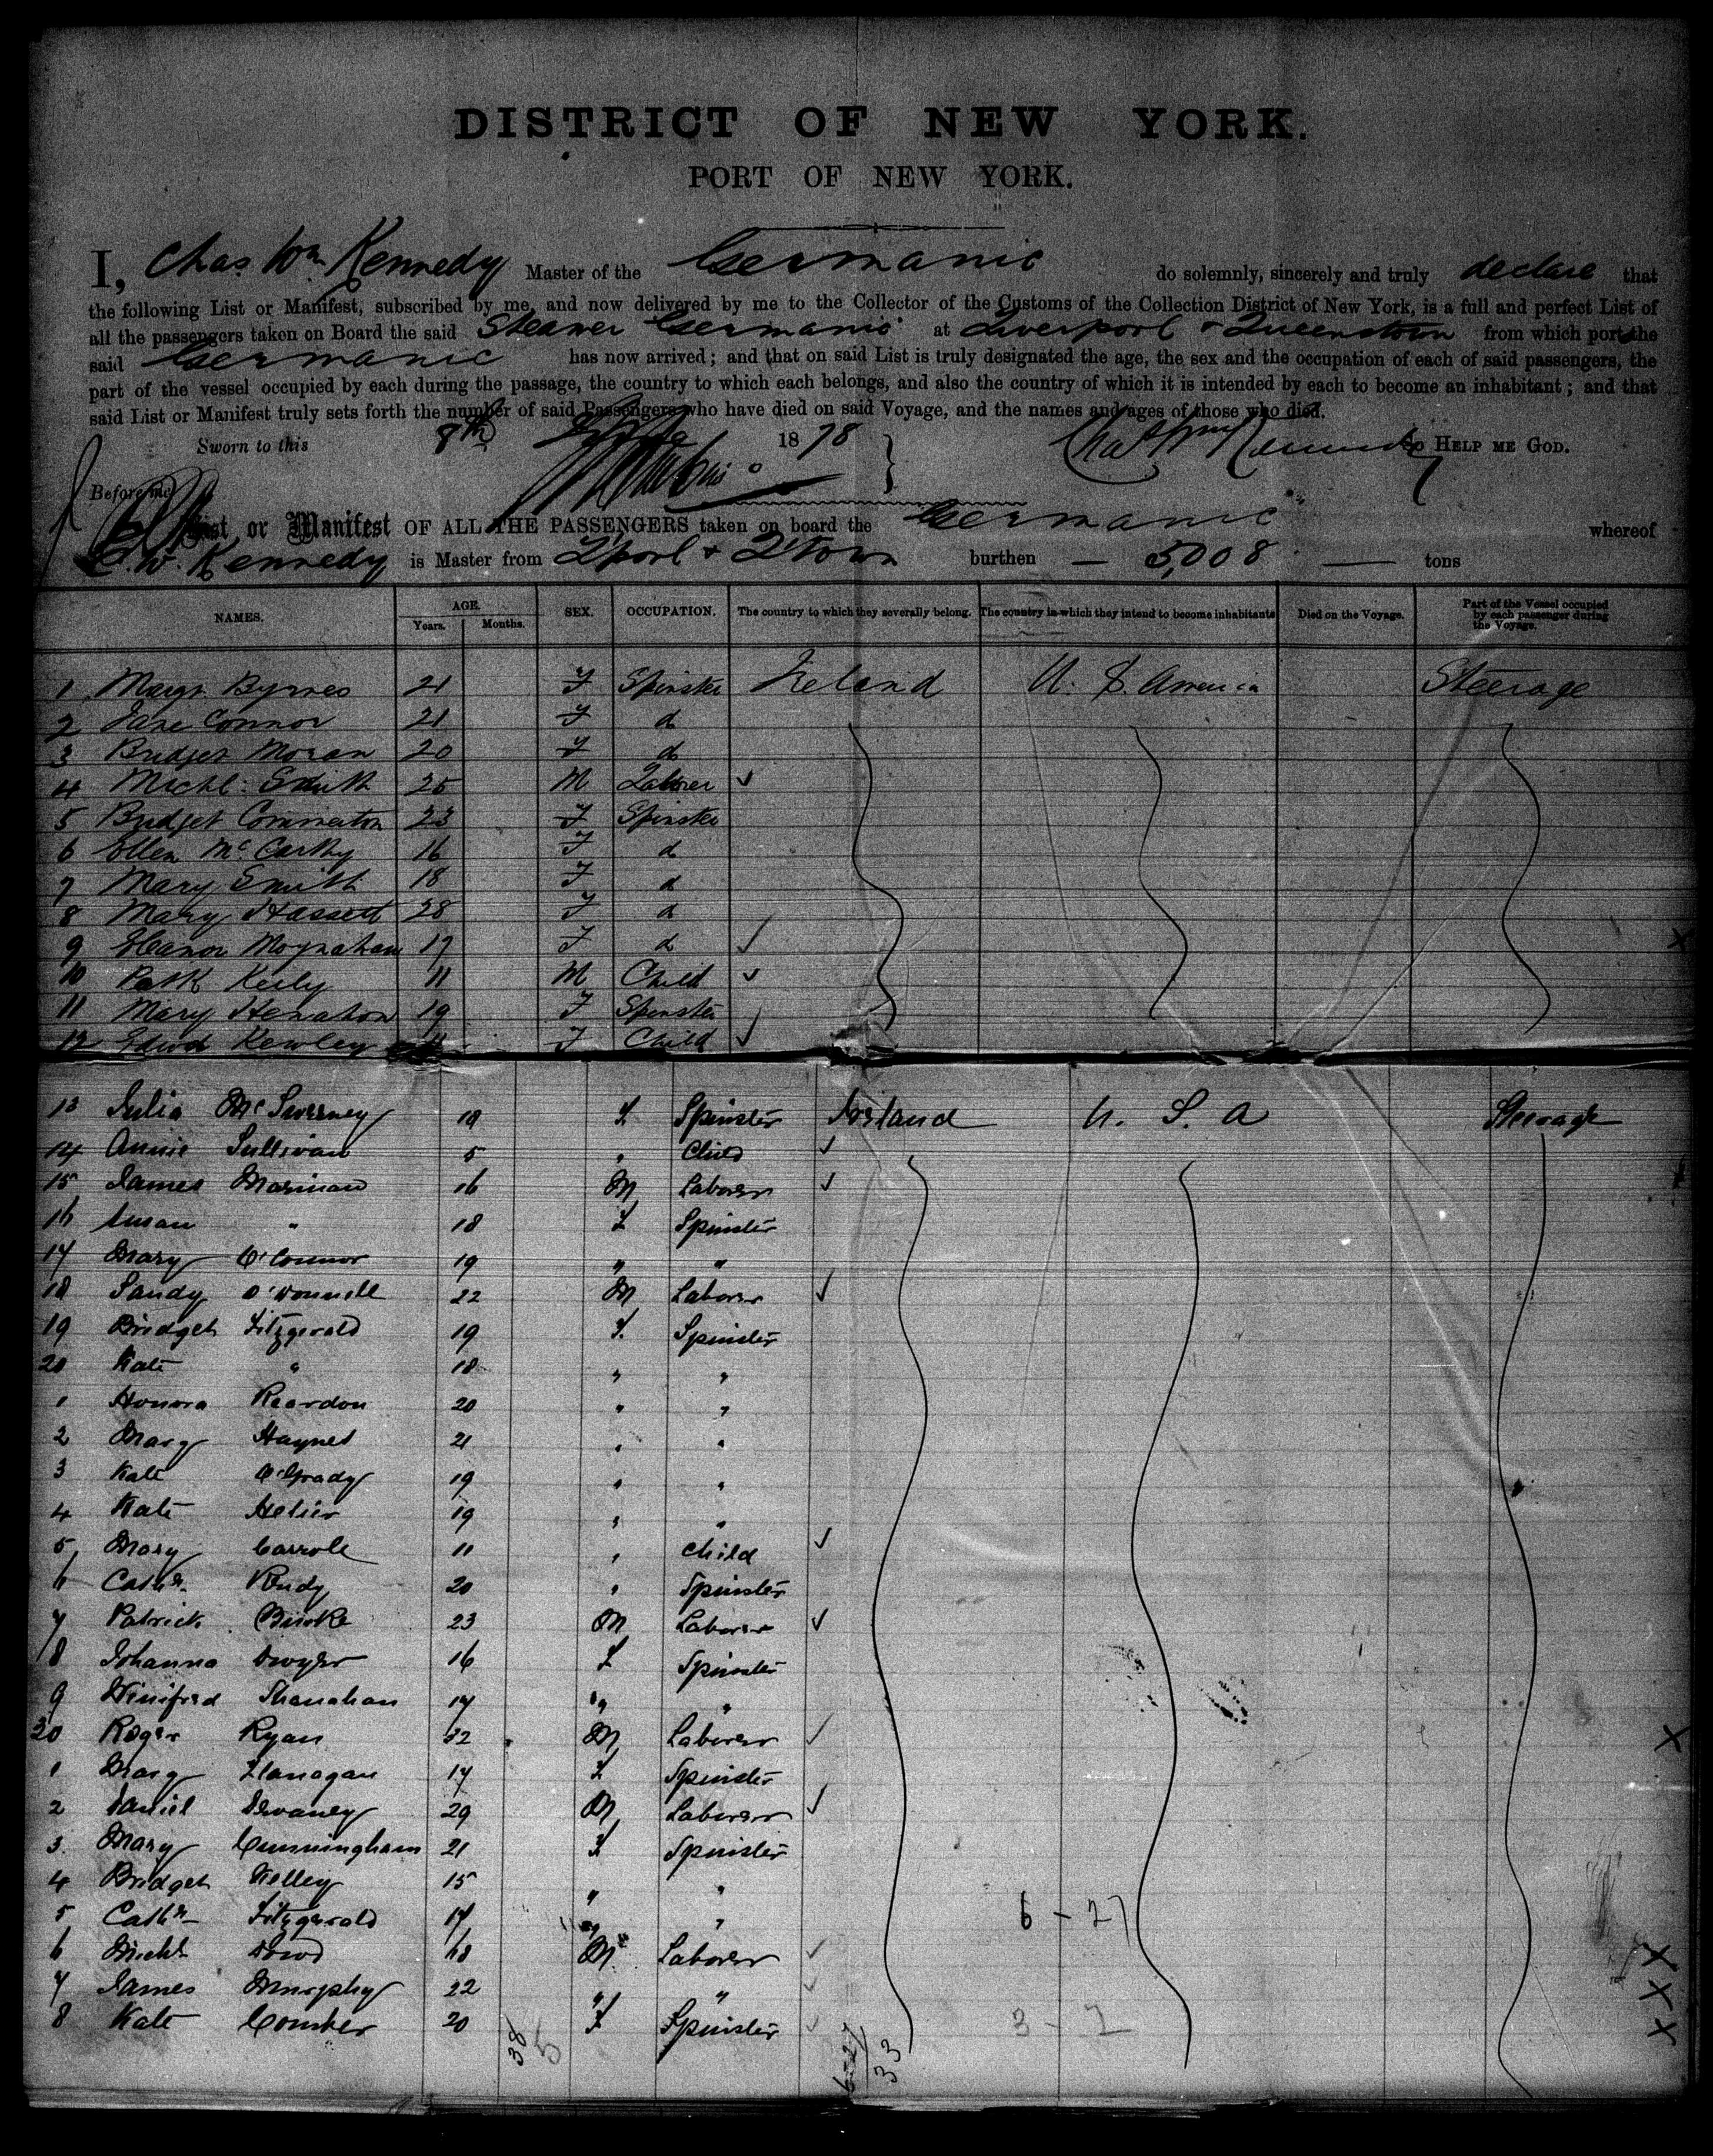 DISTRICT OF NEW YORK.
PORT OF NEW YORK.
I, Chas Wm Kennedy Master of the Germanic do solemnly, sincerely and truly declare that
the following List or Manifest, subscribed by me, and now delivered by me to the Collector of the Customs of the Collection District of New York, is a full and perfect List of
all the passengers taken on Board the said Steamer Germanic at Liverpool + Queenstown from which port the
said Germanic has now arrived; and that on said List is truly designated the age, the sex and the occupation of each of said passengers, the
part of the vessel occupied by each during the passage, the country to which each belongs, and also the country of which it is intended by each to become an inhabitant; and that
said List or Manifest truly sets forth the number of said Passengers who have died on said Voyage, and the names and ages of those who died.
Sworn to this 8th 1878 Chas Wm Kennedy SO HELP ME GOD.
Before me
List or Manifest OF ALL THE PASSENGERS taken on board the Germanic whereof
C. W. Kennedy is Master from L'pool + Q'town burthen — 5,008 — tons
NAMES. AGE. Years. Months. SEX. OCCUPATION. The country to which they severally belong. The country in which they intend to become inhabitants Died on the Voyage. Part of the Vessel occupied by each passenger during the Voyage.
1 Margt Byrnes 21 F Spinster Ireland U. S. America Steerage
2 Jane Connor 21 F d
3 Bridget Moran 20 F d
4 Michl: Smith 25 M Laborer ✓
5 Bridget Commerton 23 F Spinster
6 Ellen McCarthy 16 F d
7 Mary Smith 18 F d
8 Mary Hassett 28 F d
9 Eleanor Moynahan 17 F d ✓ X
10 Patk Keily 11 M Child ✓
11 Mary Henahon 19 F Spinster
12 Edwd Kewley 11 F Child ✓
13 Julia McSweeney 18 F Spinster Ireland U. S. A Steerage
14 Annie Sullivan 5 " Child ✓
15 James Marinan 16 M Laborer ✓
16 Susan " 18 F Spinster
17 Mary O'Connor 19 " "
18 Sandy O'Donnell 22 M Laborer ✓
19 Bridget Fitzgerald 19 F. Spinster
20 Kate " 18 " "
1 Honora Reardon 20 " "
2 Mary Haynes 21 " "
3 Kate O'Grady 19 " "
4 Kate Helier 19 " "
5 Mary Carroll 11 " Child ✓
6 Cathn. Rudy 20 " Spinster
7 Patrick Burke 23 M Laborer ✓
8 Johanna Dwyer 16 F Spinster
9 Winifred Shanahan 17 " "
30 Roger Ryan 32 M Laborer ✓ X
1 Mary Flanagan 17 F Spinster
2 Daniel Devaney 29 M Laborer ✓
3 Mary Cunningham 21 F Spinster
4 Bridget Kelley 15 " "
5 Cathn Fitzgerald 17 " " 6 - 27
6 Michl Dowd 18 M Laborer ✓ X
7 James Murphy 22 " " ✓ X
8 Kate Comber 20 F Spinster ✓ 3 - 2 X
38 5 6-27 33